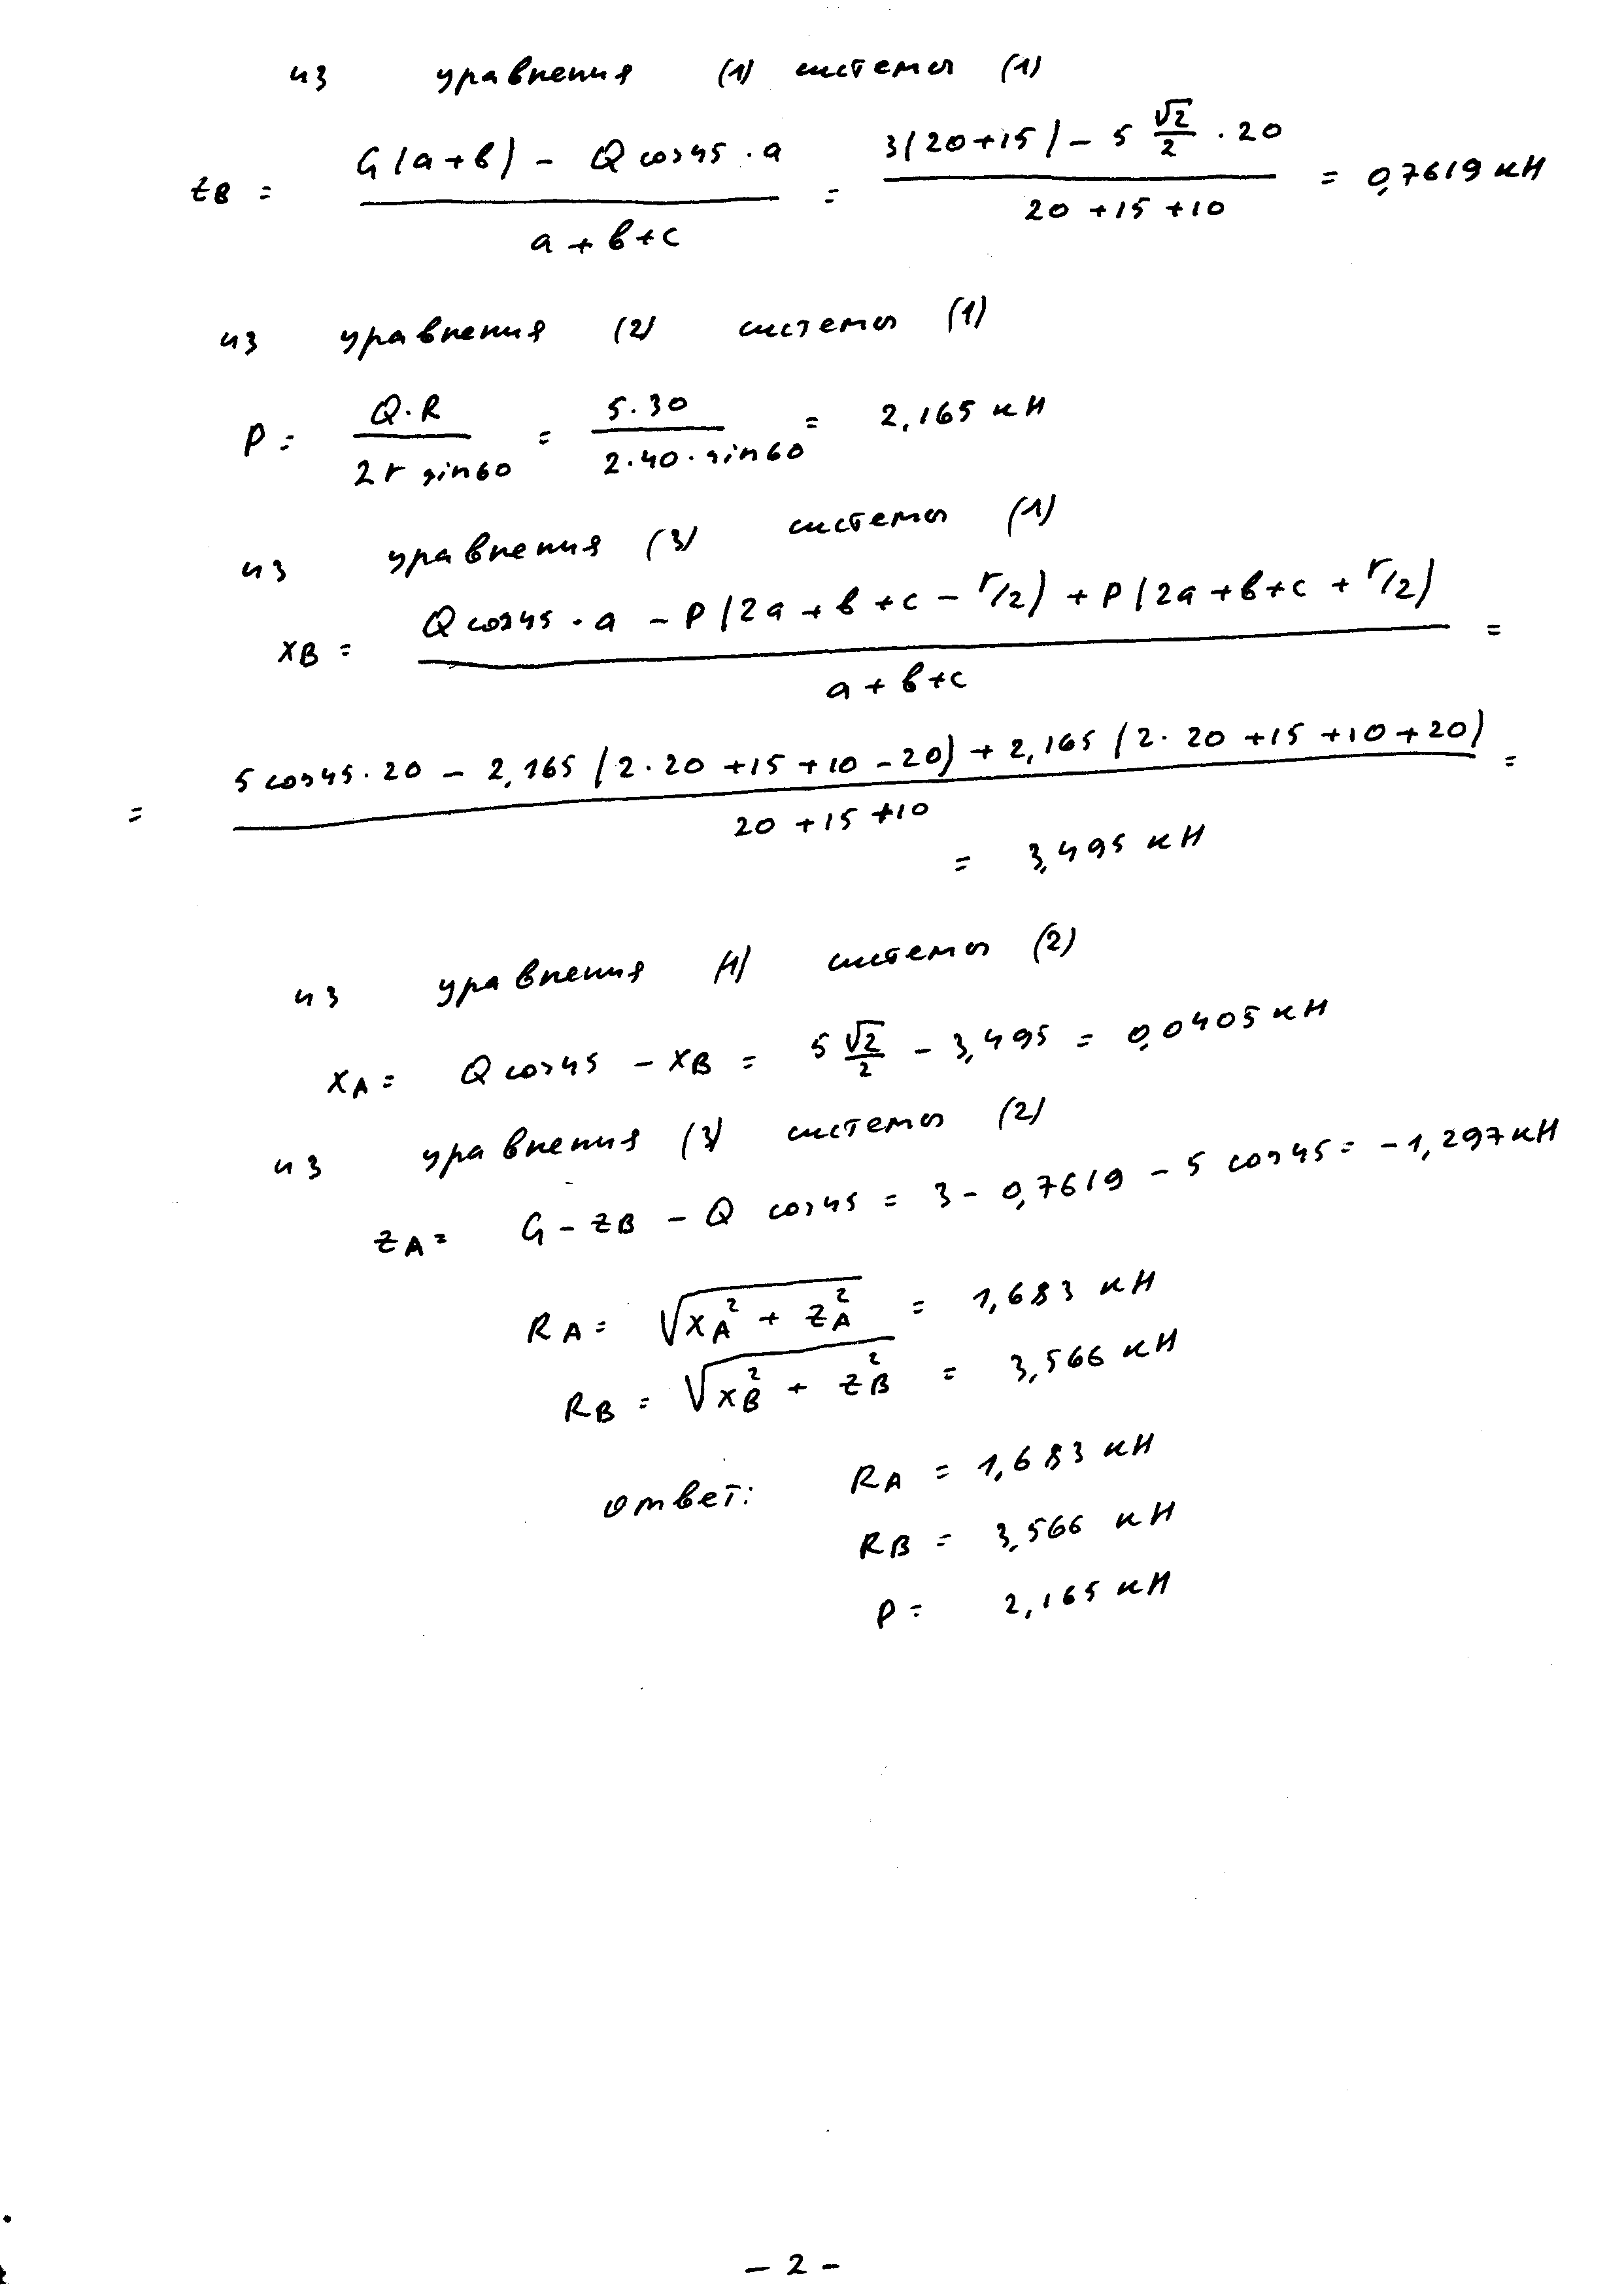 из уравнения (1) системы (1)
zB = G(a+b) - Q cos45 · a / a+b+c = 3(20+15) - 5 √2/2 · 20 / 20+15+10 = 0,7619 кН
из уравнения (2) системы (1)
P = Q·R / 2r sin60 = 5·30 / 2·40·sin60 = 2,165 кН
из уравнения (3) системы (1)
xB = Q cos45 · a - P(2a+b+c - r/2) + P(2a+b+c + r/2) / a+b+c =
= 5 cos45·20 - 2,165(2·20+15+10-20) + 2,165(2·20+15+10+20) / 20+15+10 =
= 3,495 кН
из уравнения (1) системы (2)
xA = Q cos45 - xB = 5 √2/2 - 3,495 = 0,0405 кН
из уравнения (3) системы (2)
zA = G - zB - Q cos45 = 3 - 0,7619 - 5 cos45 = -1,297 кН
RA = √xA² + zA² = 1,683 кН
RB = √xB² + zB² = 3,566 кН
ответ: RA = 1,683 кН
RB = 3,566 кН
P = 2,165 кН
- 2 -